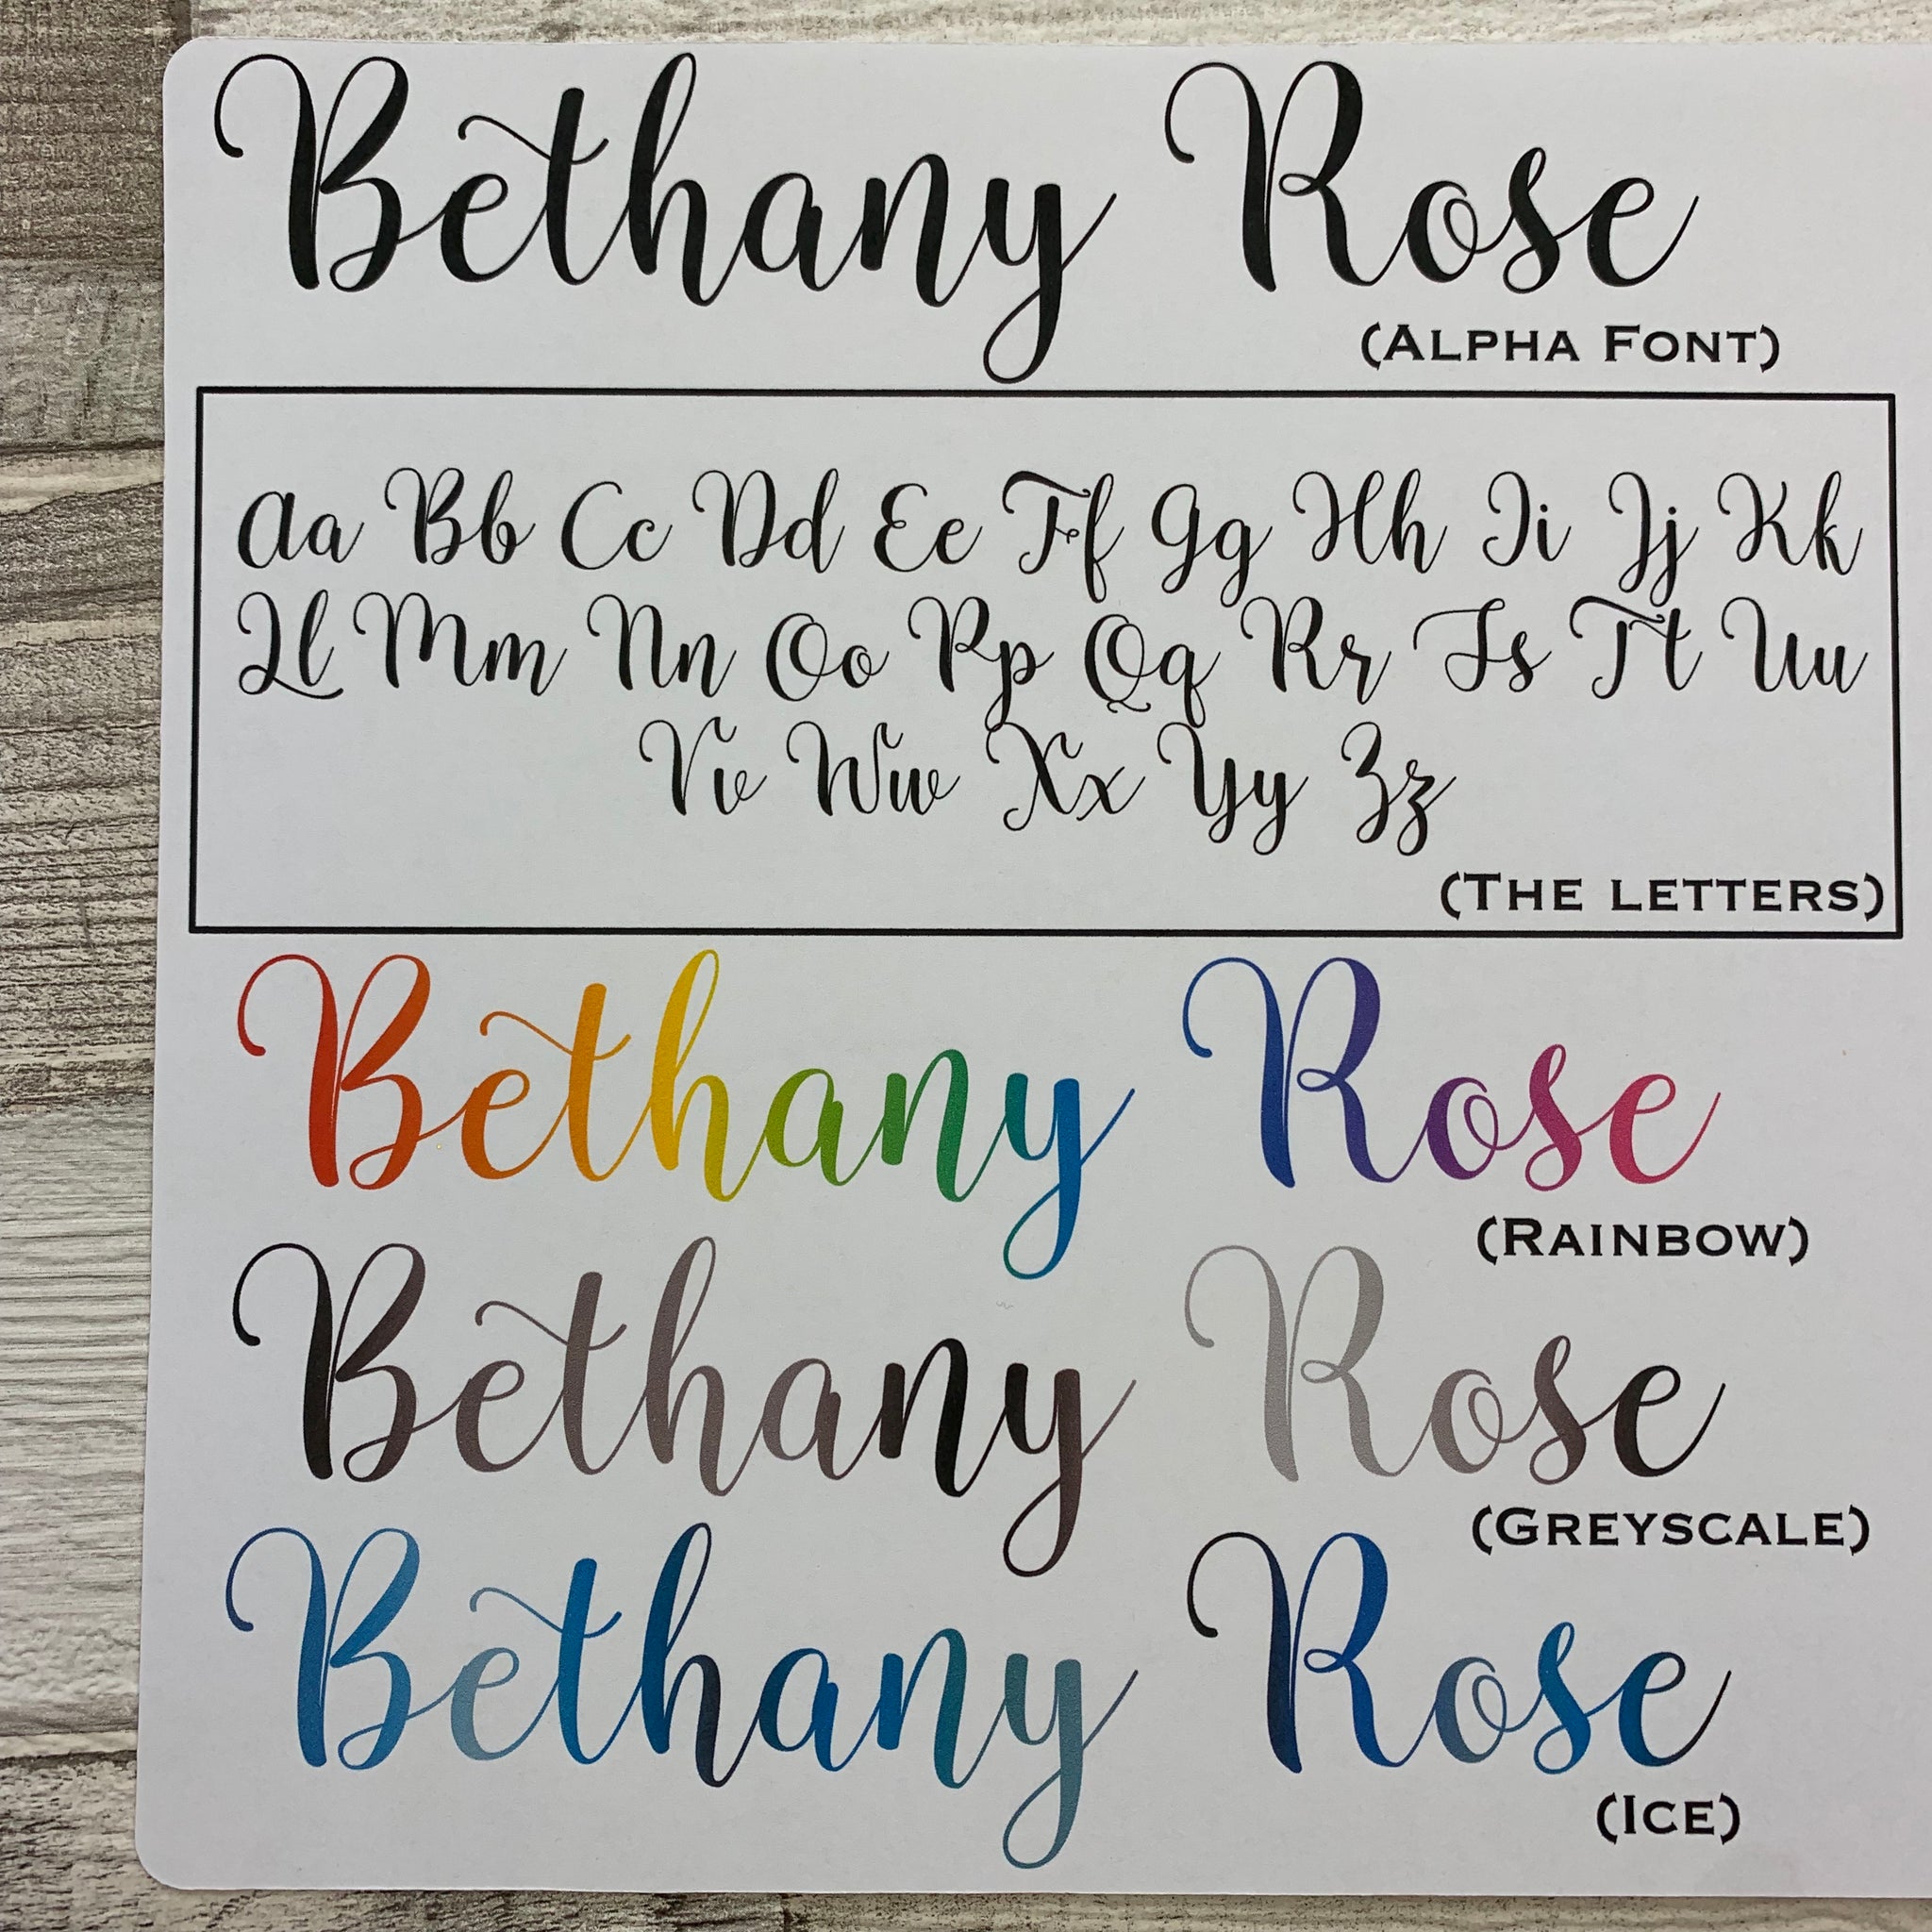 Bethany Rose
(Alpha Font)
Aa Bb Cc Dd Ee Ff Gg Hh Ii Jj Kk
Ll Mm Nn Oo Pp Qq Rr Ss Tt Uu
Vv Ww Xx Yy Zz
(The letters)
Bethany Rose
(Rainbow)
Bethany Rose
(Greyscale)
Bethany Rose
(Ice)